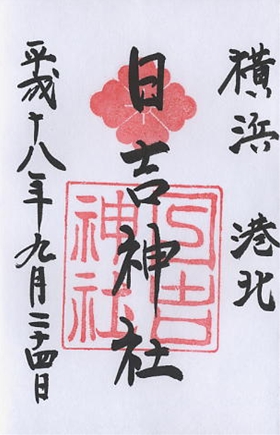 横浜 港北
日吉神社
日吉神社
平成十八年九月二十四日